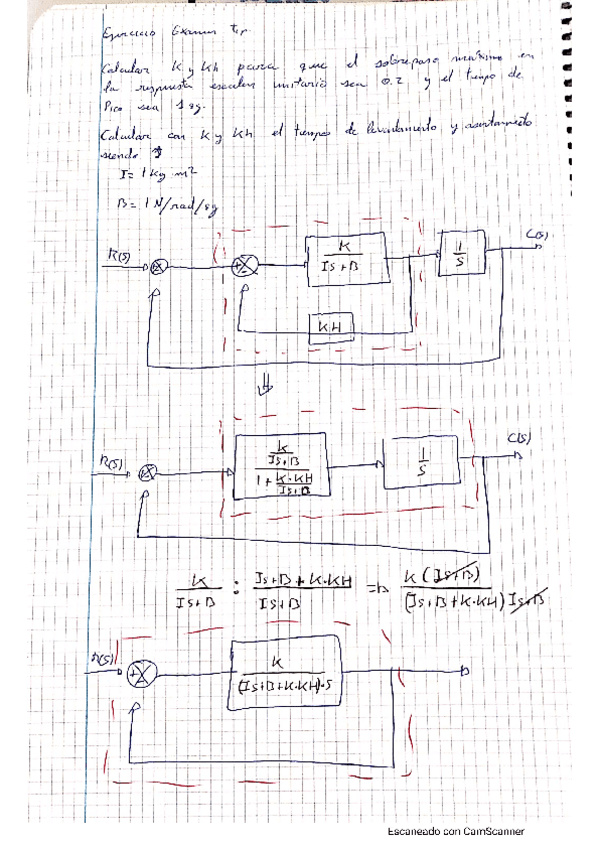 Ejercicio Examen tip
Calcular K y Kh para que el sobrepaso máximo en
la respuesta escalon unitario sea 0.2 y el tiempo de
Pico sea 1 sg.
Calcular con K y Kh el tiempo de levantamiento y asentamiento
siendo
I = 1 Kg m²
B = 1 N/rad/sg
R(s) K C(s)
Is+B 1
S
K.H
⇓
R(s) K C(s)
Is+B 1
1+K·KH S
Is+B
K : Is+B+K·KH ⇒ K (Is+B)
Is+B Is+B (Is+B+K·KH) Is+B
R(s) K
(Is+B+K·KH)·S
Escaneado con CamScanner